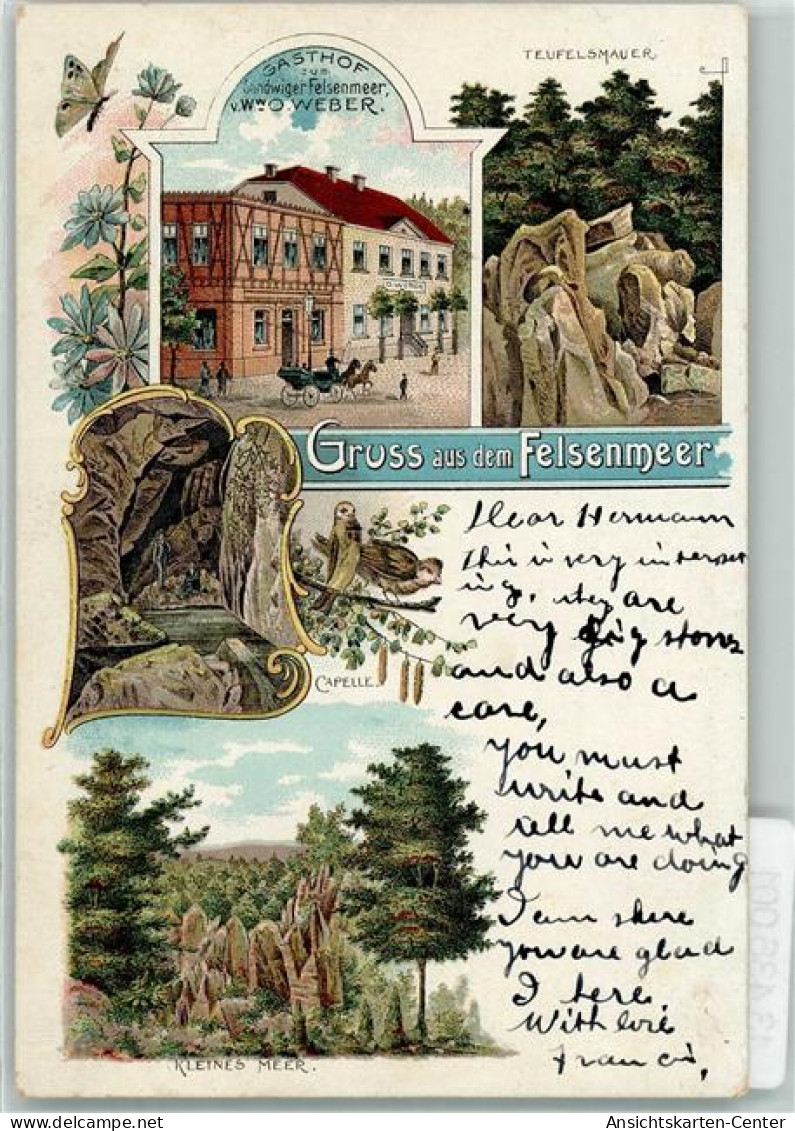 GASTHOF
zum
Sundwiger Felsenmeer,
v. Wwe O. WEBER.
TEUFELSMAUER.
O. WEBER
Gruss aus dem Felsenmeer
CAPELLE.
KLEINES MEER.
Dear Hermann
this is very interest
ing, they are
very big stons
and also a
cave,
you must
write and
tell me what
you are doing
I am shere
you are glad
I here.
With love
Francis,
Ansichtskarten-Center